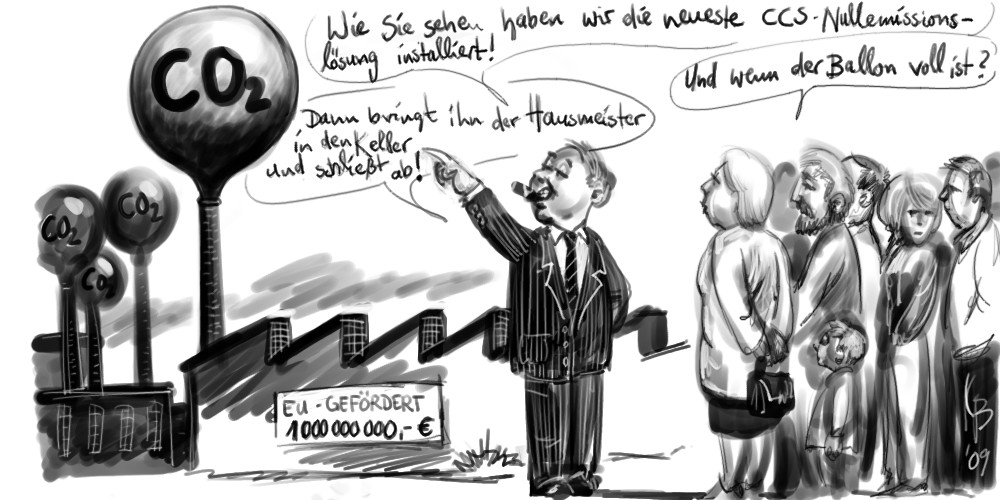 Wie Sie sehen haben wir die neueste CCS-Nullemissions-
lösung installiert!
Und wenn der Ballon voll ist?
Dann bringt ihn der Hausmeister
in den Keller
und schließt ab!
CO2
CO2
CO2
CO2
EU-GEFÖRDERT
1000 000 000,- €
'09